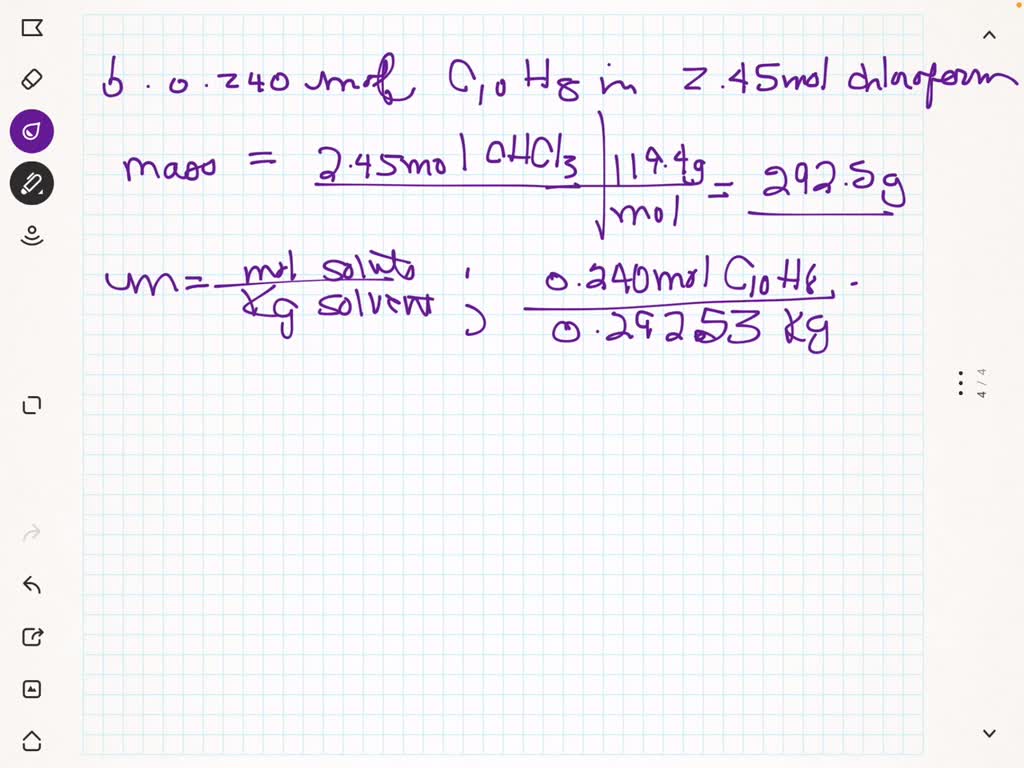 b. 0.240 mol C10H8 in 2.45mol chloroform
mass = 2.45mol CHCl3 | 119.4g / mol = 292.5g
m = mol solute / Kg solvent ; 0.240mol C10H8 / 0.29253 Kg
4 / 4